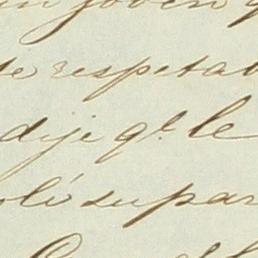 un joven
te respetab
dije qe. le
oló supar